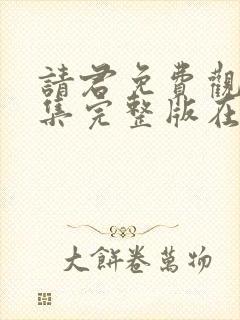 請君免費觀
集完整版在
大餅卷萬物